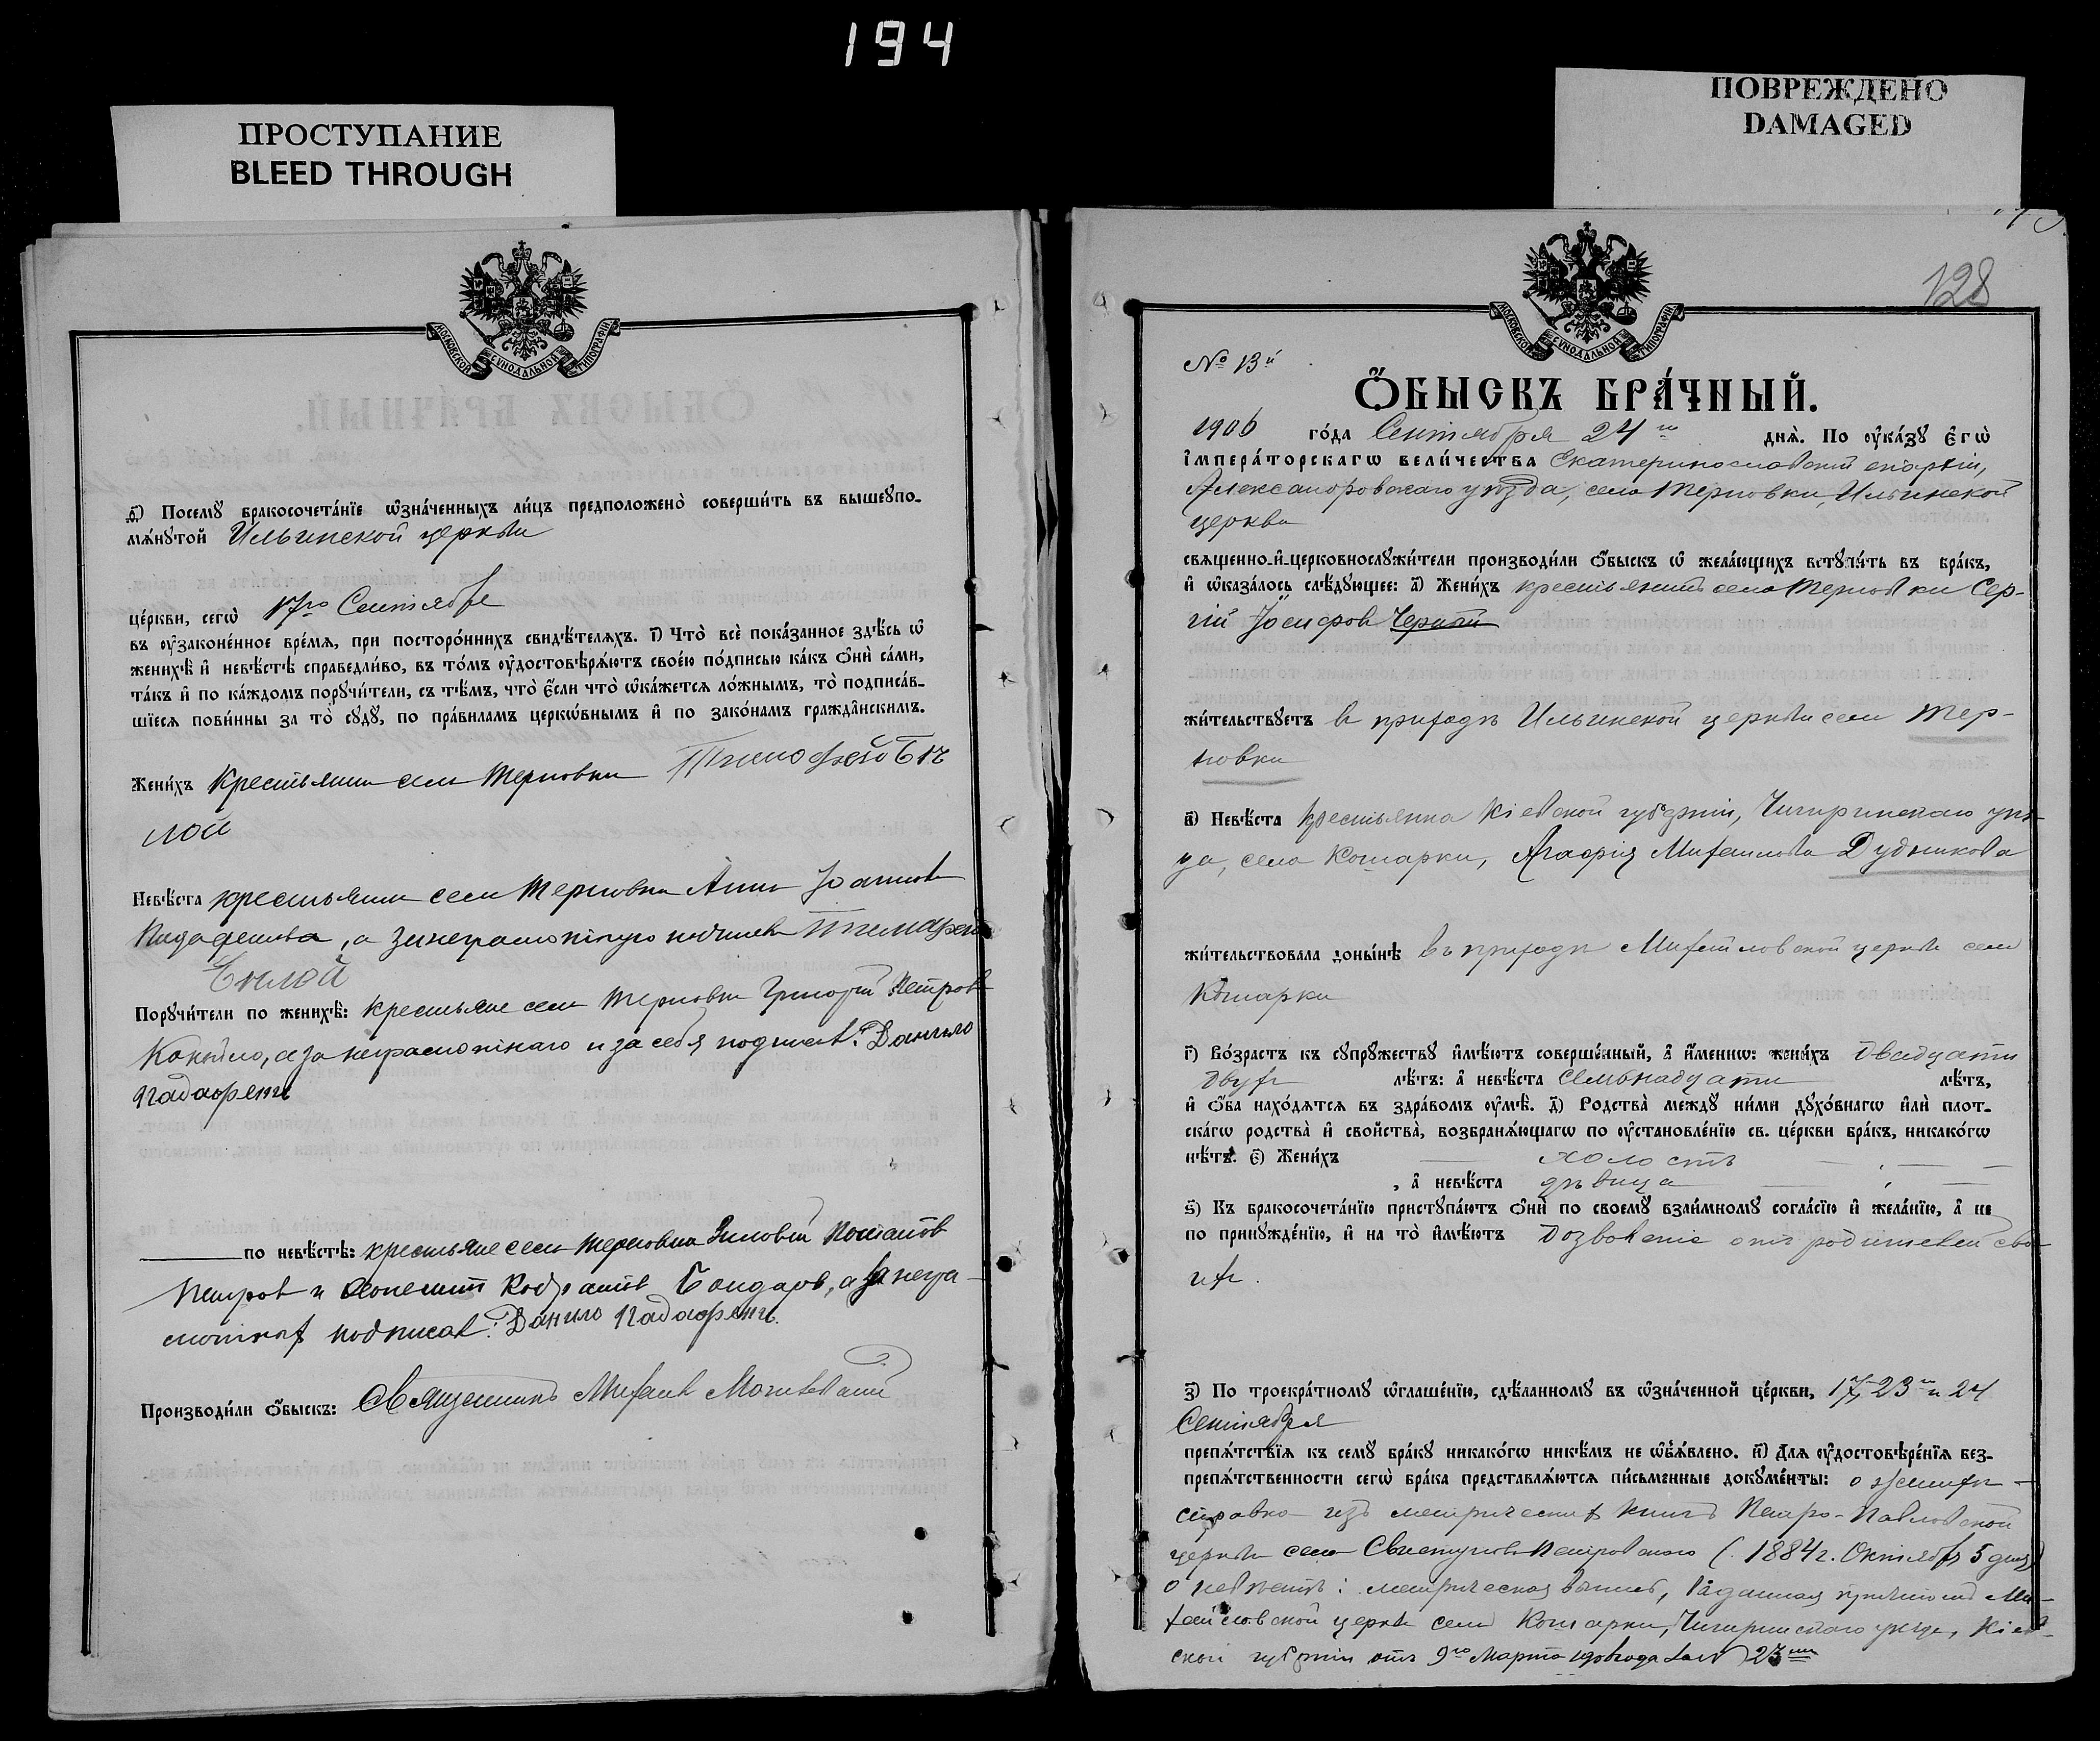 194
ПРОСТУПАНИЕ
BLEED THROUGH
ПОВРЕЖДЕНО
DAMAGED
МОСКОВСКОЙ СѴНОДАЛЬНОЙ ТИПОГРАФІИ
в҃) Посемꙋ бракосочета́нїе ѡ҆зна́ченныхъ ли́цъ предположено̀ соверши́ть въ вышеꙋпо-
мѧ́нꙋтой Ильинской церкви
це́ркви, сегѡ̀ 17го Сентября
въ оу҆законе́нное вре́мѧ, при посторо́ннихъ свидѣ́телѧхъ. і҃) Что̀ всѐ пока́занное здѣ́сь ѡ҆
женихѣ̀ и҆ невѣ́стѣ справедли́во, въ то́мъ оу҆достовѣрѧ́ютъ свое́ю по́дписью ка́къ ѻ҆нѝ са́ми,
та́къ и҆ по ка́ждомъ порꙋчи́тели, съ тѣ́мъ, что̀ є҆́сли что̀ ѡ҆ка́жетсѧ ло́жнымъ, то̀ подписа́в-
шїесѧ пови́нны за то̀ сꙋдꙋ̀, по пра́виламъ церкѡ́внымъ и҆ по зако́намъ гражда̑нскимъ.
Жени́хъ Крестьянин села Терновки Тимофей Бѣ
лой
Невѣ́ста крестьянка села Терновки Анна Іоаннова
, а за неграмотную подписал Тимофей
Бѣлой
Порꙋчи́тели по женихѣ̀: крестьяне села Терновки Григорій Петров
, а за неграмотнаго и за себя подписал: Данило
по невѣ́стѣ: крестьяне села Терновки Зиновій
Петров и Бондарь, а за негра-
мотных подписал: Данило
Производи́ли ѻ҆́быскъ: Священникъ Михаил
128
МОСКОВСКОЙ СѴНОДАЛЬНОЙ ТИПОГРАФІИ
№ 13й
Ѻ҆́БЫСКЪ БРА́ЧНЫЙ.
1906 го́да Сентября 24го днѧ̀. По оу҆ка́зꙋ є҆гѡ̀
і҆мпера́торскагѡ вели́чества Екатеринославской епархіи,
Александровскаго уѣзда, села Терновки, Ильинской
церкви
свѧщенно-и҆-церковнослꙋжи́тели производи́ли ѻ҆́быскъ ѡ҆ жела́ющихъ встꙋпи́ть въ бра́къ,
и҆ ѡ҆каза́лось слѣ́дꙋющее: а҃) Жени́хъ крестьянинъ села Терновки Сер-
гій Іосифов Черный
жи́тельствꙋетъ в приходѣ Ильинской церкви села Тер-
новки
в҃) Невѣ́ста крестьянка Кіевской губерніи, Чигиринскаго уѣз-
да, села Кошарки, Агафія Михаилова Дудникова
жи́тельствовала доны́нѣ въ приходѣ Михайловской церкви села
Кошарки
г҃) Во́зрастъ къ сꙋпрꙋ́жествꙋ и҆мѣ́ютъ соверше́нный, а҆ и҆́меннѡ: жени́хъ двадцати
двух лѣ́тъ: а҆ невѣ́ста семьнадцати лѣ́тъ,
и҆ ѻ҆́ба нахо́дѧтсѧ въ здра́вомъ оу҆мѣ̀. д҃) Родства̀ междꙋ̀ ни́ми дꙋхо́внагѡ и҆лѝ плот-
ска́гѡ родства̀ и҆ сво́йства̀, возбранѧ́ющагѡ по оу҆становле́нїю св. це́ркви бра́къ, никако́гѡ
нѣ́тъ. є҃) Жени́хъ холостъ
, а҆ невѣ́ста дѣвица
ѕ҃) Къ бракосочета́нїю пристꙋпа́ютъ ѻ҆нѝ по своемꙋ̀ взаи́мномꙋ согла́сїю и҆ жела́нїю, а҆ не
по принꙋжде́нїю, и҆ на то̀ и҆мѣ́ютъ дозволеніе отъ родителей сво-
их.
з҃) По троекра́тномꙋ ѡ҆глаше́нїю, сдѣ́ланномꙋ въ ѡ҆зна́ченной це́ркви, 17, 23 и 24
Сентября
препѧ́тствїѧ къ семꙋ̀ бра́кꙋ никако́гѡ никѣ́мъ не ѡ҆б̾ѧ́влено. и҃) Длѧ оу҆достовѣре́нїѧ без-
препѧ́тственности сегѡ̀ бра́ка представлѧ́ютсѧ пи́сьменные докꙋме́нты: о женихѣ –
справка изъ метрических книгъ Петро-Павловской
церкви села (1884 г. Октября 5 дня)
о невѣстѣ: метрическая выпись, выданная причтом Ми-
хайловской церкви села Кошарки, Чигиринскаго уѣзда, Кіев-
ской губерніи отъ 9го Марта 1906 года за № 23